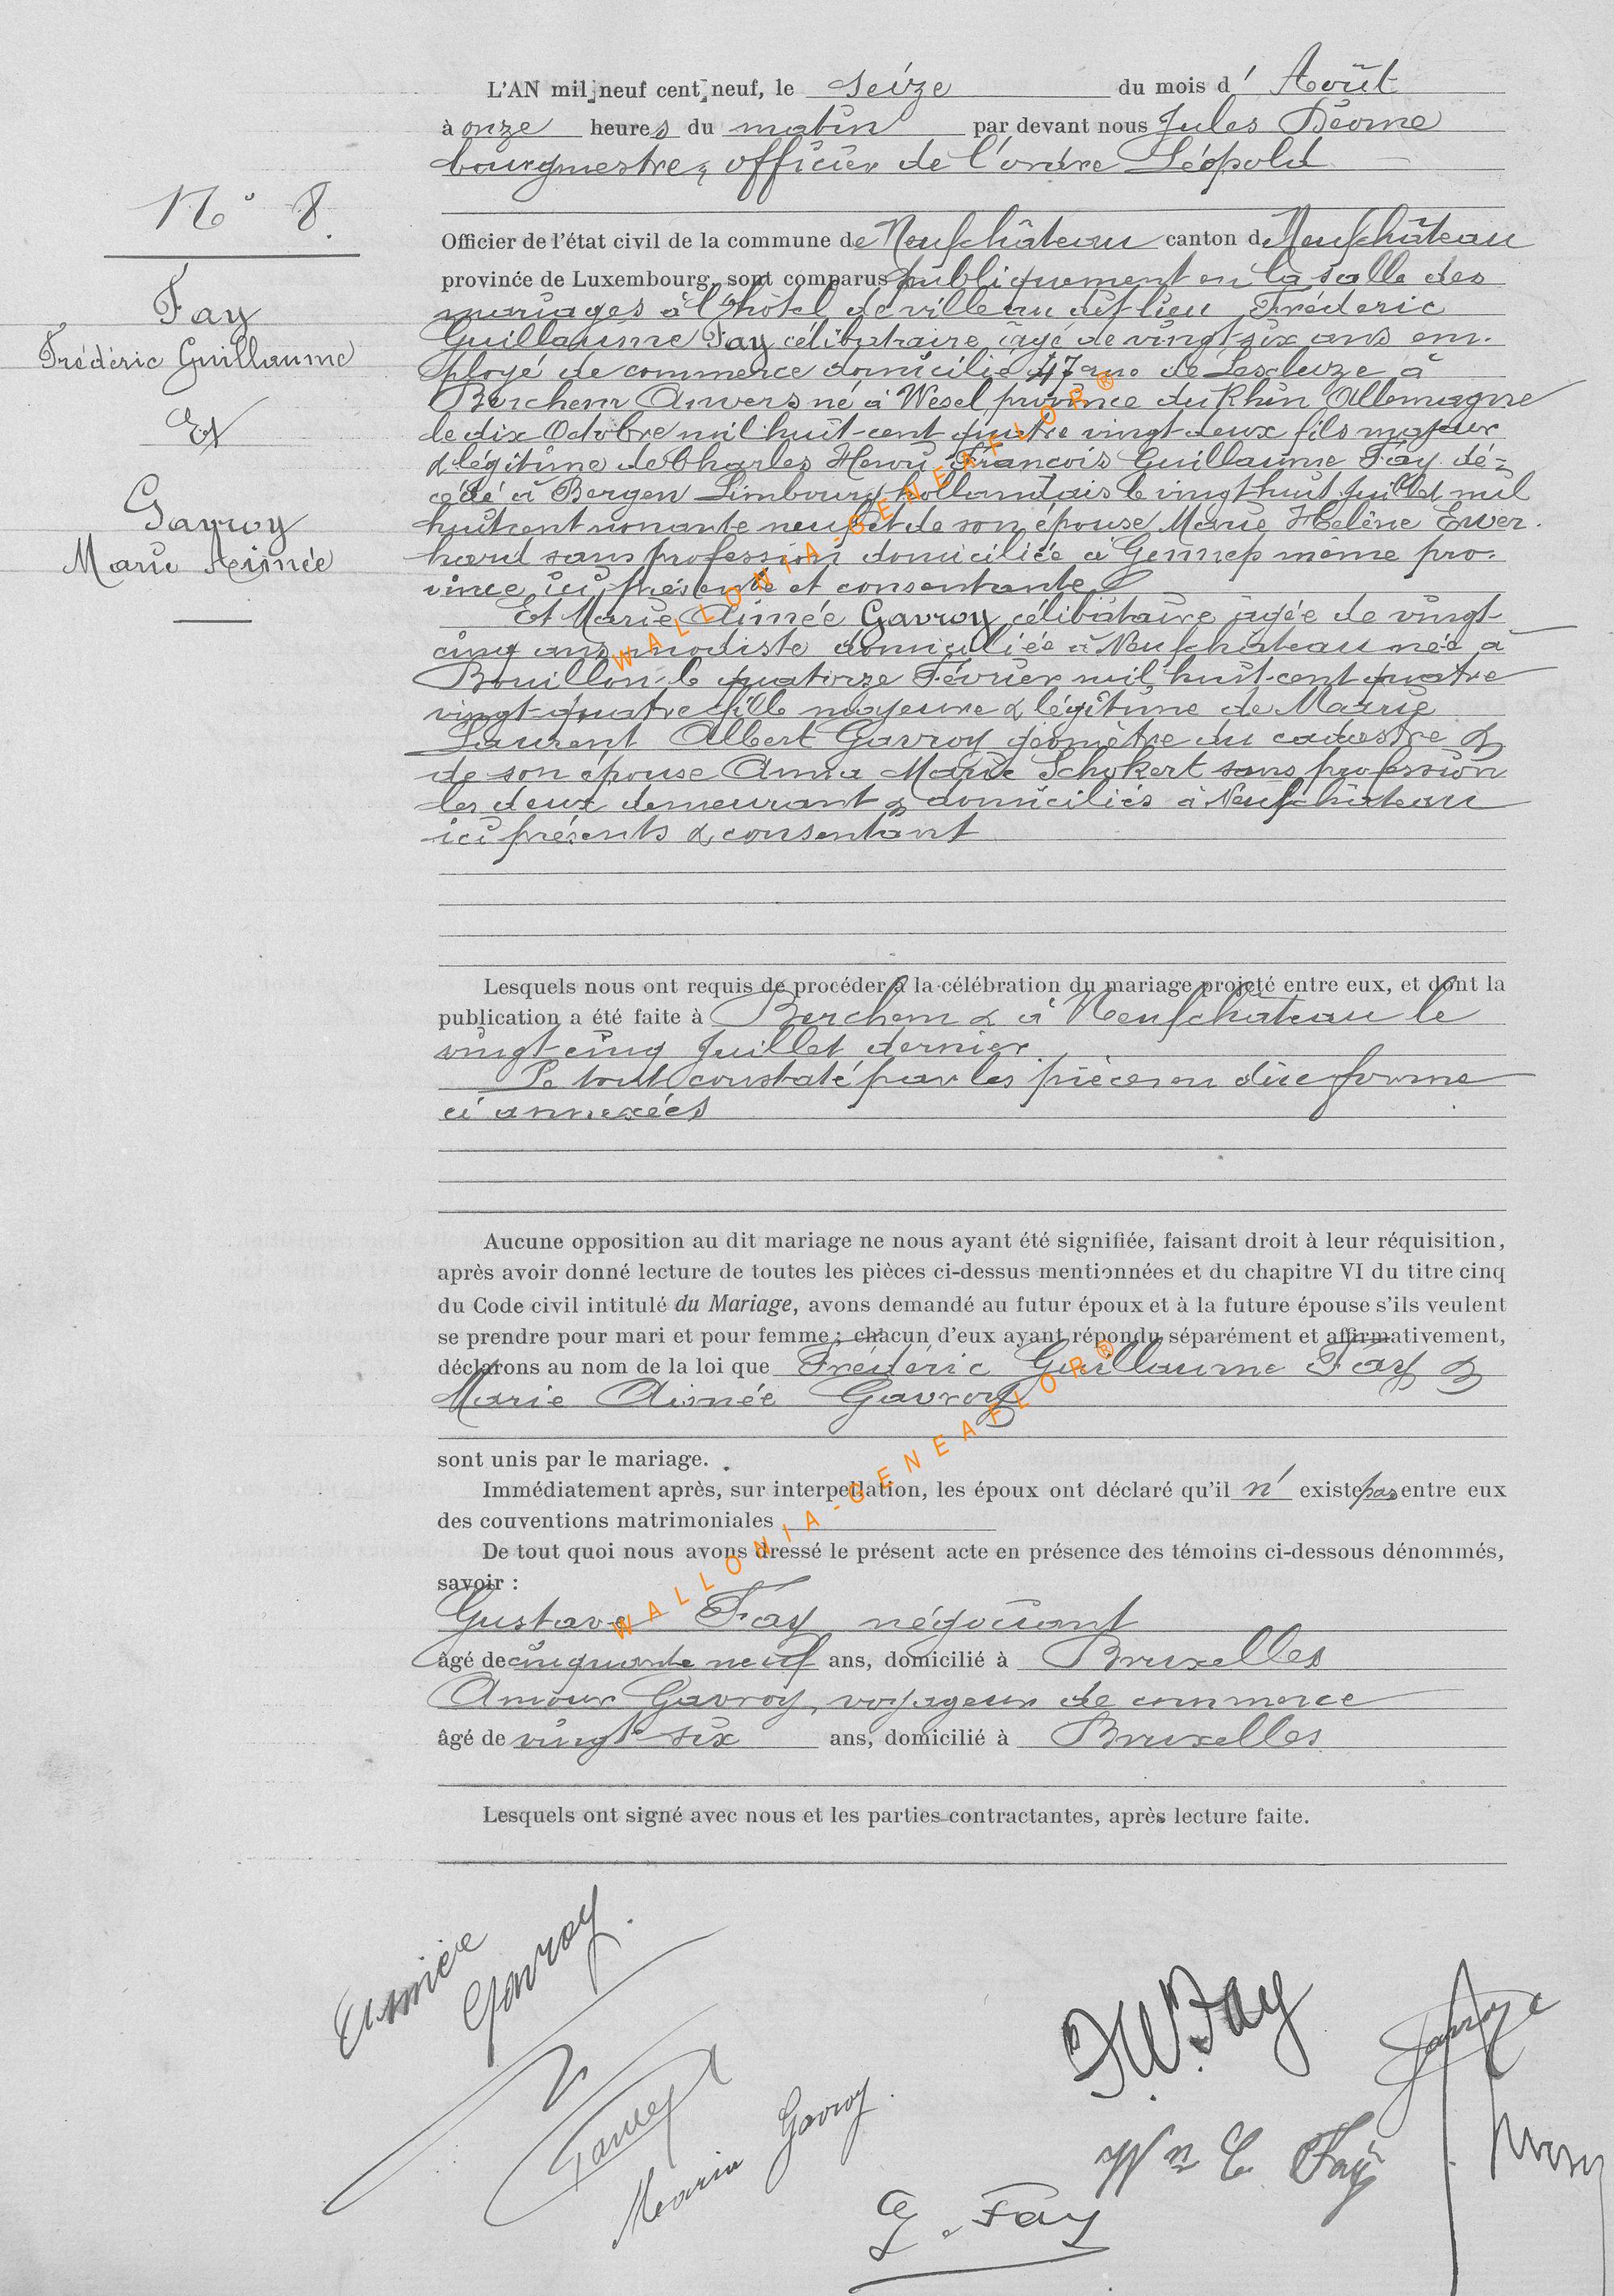 L'AN mil neuf cent neuf, le seize du mois d' Août
à onze heures du matin par devant nous Jules
bourgmestre, officier de l'ordre Léopold
N° 8.
Officier de l'état civil de la commune de Neufchâteau canton de Neufchâteau
province de Luxembourg, sont comparus publiquement en la salle des
mariages à l'hôtel de ville au dit lieu Fréderic
Guillaume Fay célibataire âgé de vingt-six ans em-
ployé de commerce domicilié 47 rue de Lescluze à
Berchem Anvers né à Wesel province du Rhin Allemagne
le dix Octobre mil huit-cent quatre vingt-deux fils majeur
& légitime de Charles Henri François Guillaume Fay dé-
cédé à Bergen Limbourg hollandais le vingt huit Juillet mil
huitcent nonante neuf et de son épouse Marie Hélène Ewer-
hard sans profession domiciliée à Gennep même pro-
vince ici présente et consentante
Et Marie Aimée Gavroy célibataire âgée de vingt-
cinq ans modiste domiciliée à Neufchâteau née à
Bouillon le quatorze Février mil huit-cent quatre
vingt-quatre fille majeure & légitime de Marie
Laurent Albert Gavroy géomètre du cadastre &
de son épouse Anna Marie Schokert sans profession
les deux demeurant & domiciliés à Neufchâteau
ici présents & consentant
Fay
Frédéric Guillaume
Et
Gavroy
Marie Aimée
Lesquels nous ont requis de procéder à la célébration du mariage projeté entre eux, et dont la
publication a été faite à Berchem & à Neufchâteau le
vingt-cinq Juillet dernier.
Le tout constaté par les pièces en dûe forme
ci annexées
Aucune opposition au dit mariage ne nous ayant été signifiée, faisant droit à leur réquisition,
après avoir donné lecture de toutes les pièces ci-dessus mentionnées et du chapitre VI du titre cinq
du Code civil intitulé du Mariage, avons demandé au futur époux et à la future épouse s'ils veulent
se prendre pour mari et pour femme ; chacun d'eux ayant répondu séparément et affirmativement,
déclarons au nom de la loi que Fréderic Guillaume Fay &
Marie Aimée Gavroy
sont unis par le mariage.
Immédiatement après, sur interpellation, les époux ont déclaré qu'il n' existe pas entre eux
des conventions matrimoniales
De tout quoi nous avons dressé le présent acte en présence des témoins ci-dessous dénommés,
savoir :
Gustave Fay négociant
âgé de cinquante neuf ans, domicilié à Bruxelles
Amour Gavroy, voyageur de commerce
âgé de vingt-six ans, domicilié à Bruxelles
Lesquels ont signé avec nous et les parties contractantes, après lecture faite.
Gavroy.
F.W. Fay
Maria Gavroy.
Fay
G. Fay
WALLONIA-GENEAFLOR®
WALLONIA-GENEAFLOR®